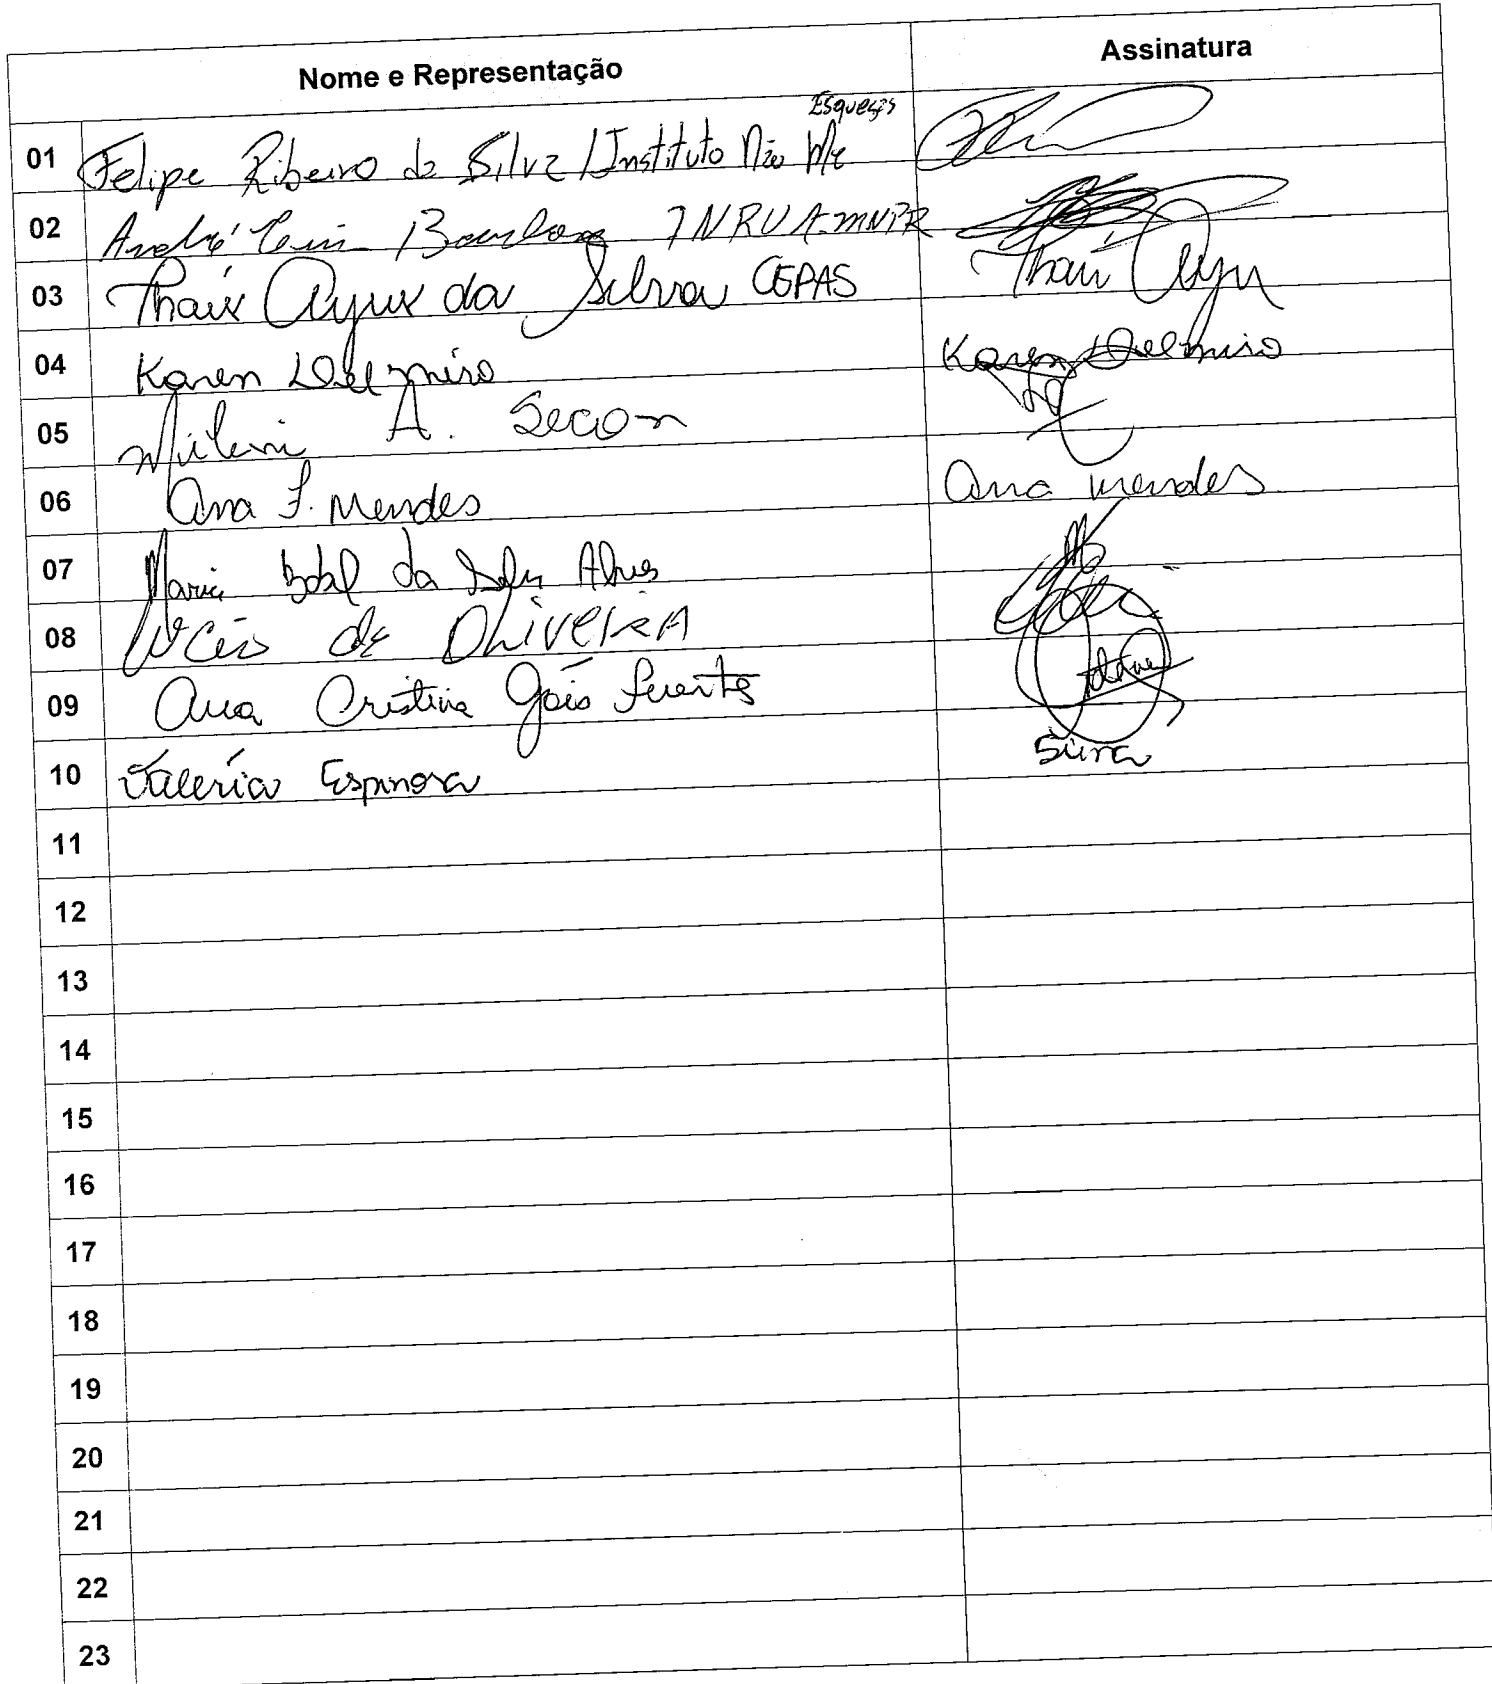 Nome e Representação Assinatura
Esqueças
01 Felipe Ribeiro da Silva / Instituto Não Me
02 André Luis INRUA-MNPR
03 Thais da Silva CEPAS Thais
04 Karen Delmiro Karen Delmiro
05 A. Secon
06 Ana F. Mendes Ana Mendes
07 Maria da Alves
08 de OliveiRA
09 Ana Cristina Gois Fuentes
10 Valéria Espinosa
11
12
13
14
15
16
17
18
19
20
21
22
23